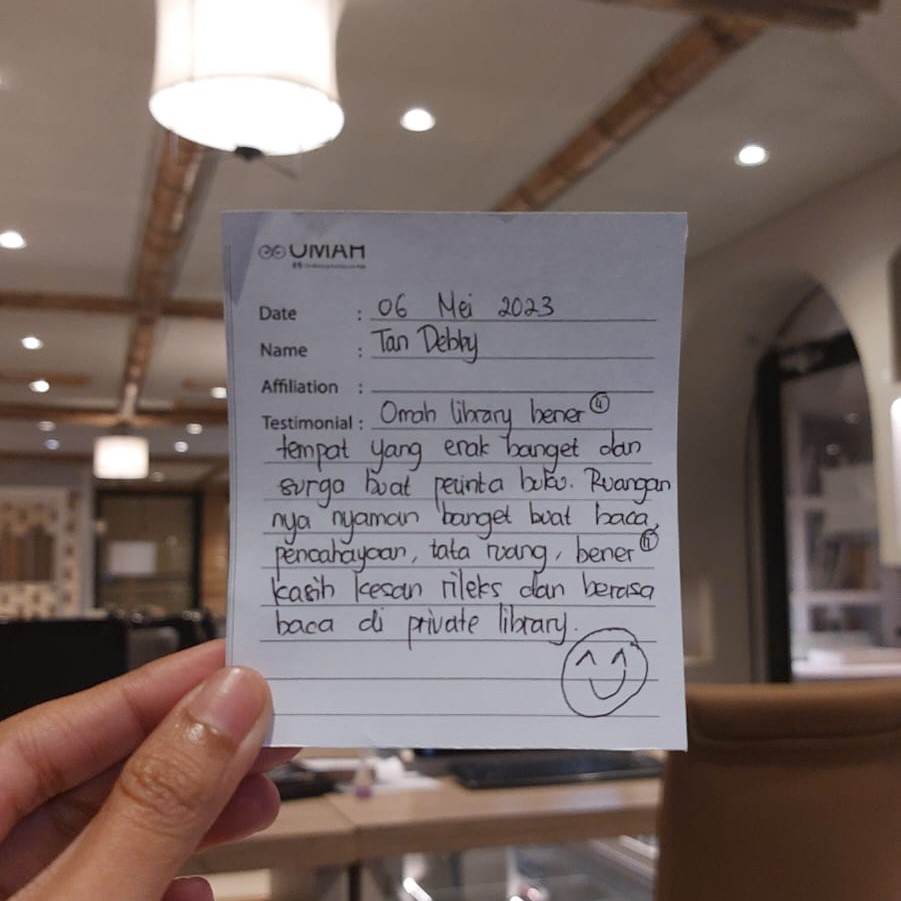 OMAH
Date : 06 Mei 2023
Name : Tan Debby
Affiliation :
Testimonial : Omah library bener ⁴
tempat yang enak banget dan
surga buat pecinta buku. Ruangan
nya nyaman banget buat baca,
pencahayaan, tata ruang, bener
kasih kesan rileks dan berasa
baca di private library.